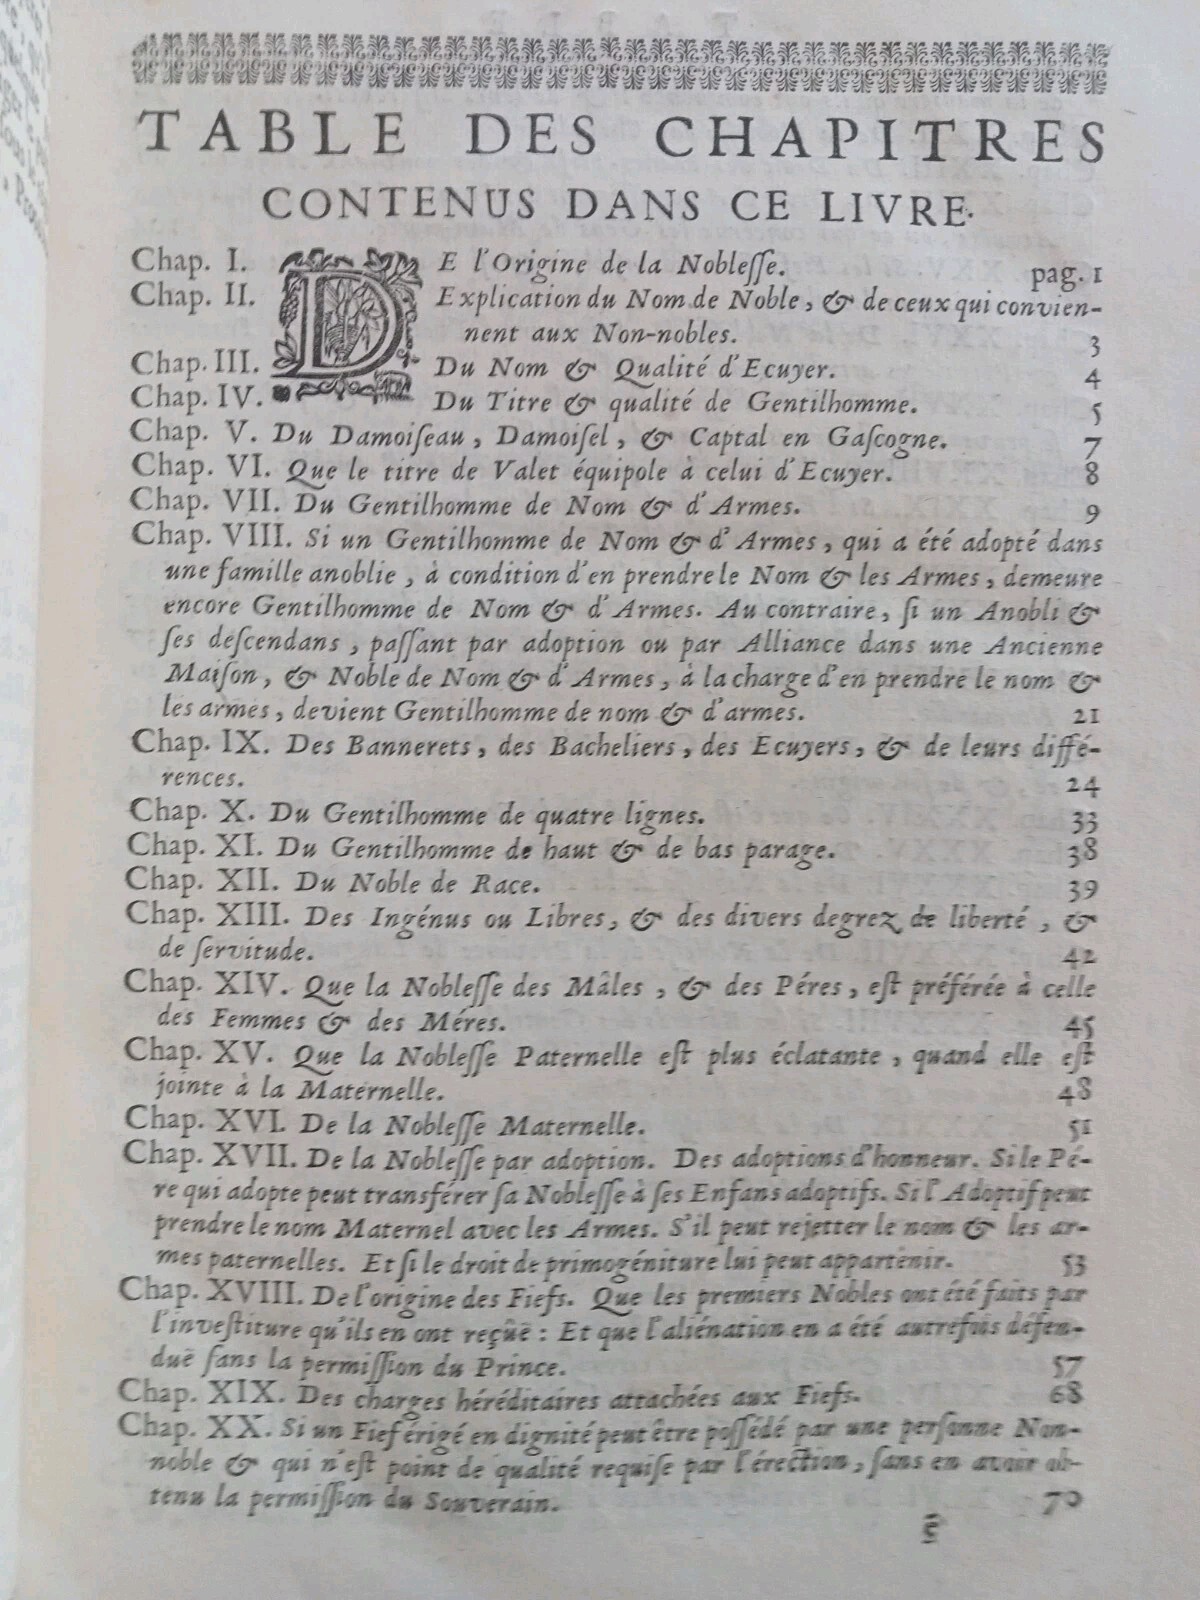 TABLE DES CHAPITRES
CONTENUS DANS CE LIVRE.
Chap. I. DE l'Origine de la Nobleſſe. pag. 1
Chap. II. Explication du Nom de Noble, & de ceux qui convien-
nent aux Non-nobles. 3
Chap. III. Du Nom & Qualité d'Ecuyer. 4
Chap. IV. Du Titre & qualité de Gentilhomme. 5
Chap. V. Du Damoiſeau, Damoiſel, & Captal en Gaſcogne. 7
Chap. VI. Que le titre de Valet équipole à celui d'Ecuyer. 8
Chap. VII. Du Gentilhomme de Nom & d'Armes. 9
Chap. VIII. Si un Gentilhomme de Nom & d'Armes, qui a été adopté dans
une famille anoblie, à condition d'en prendre le Nom & les Armes, demeure
encore Gentilhomme de Nom & d'Armes. Au contraire, ſi un Anobli &
ſes deſcendans, paſſant par adoption ou par Alliance dans une Ancienne
Maiſon, & Noble de Nom & d'Armes, à la charge d'en prendre le nom &
les armes, devient Gentilhomme de nom & d'armes. 21
Chap. IX. Des Bannerets, des Bacheliers, des Ecuyers, & de leurs diffé-
rences. 24
Chap. X. Du Gentilhomme de quatre lignes. 33
Chap. XI. Du Gentilhomme de haut & de bas parage. 38
Chap. XII. Du Noble de Race. 39
Chap. XIII. Des Ingénus ou Libres, & des divers degrez de liberté, &
de ſervitude. 42
Chap. XIV. Que la Nobleſſe des Mâles, & des Péres, eſt préférée à celle
des Femmes & des Méres. 45
Chap. XV. Que la Nobleſſe Paternelle eſt plus éclatante, quand elle eſt
jointe à la Maternelle. 48
Chap. XVI. De la Nobleſſe Maternelle. 51
Chap. XVII. De la Nobleſſe par adoption. Des adoptions d'honneur. Si le Pé-
re qui adopte peut transférer ſa Nobleſſe à ſes Enfans adoptifs. Si l'Adoptif peut
prendre le nom Maternel avec les Armes. S'il peut rejetter le nom & les ar-
mes paternelles. Et ſi le droit de primogéniture lui peut appartenir. 53
Chap. XVIII. De l'origine des Fiefs. Que les premiers Nobles ont été faits par
l'inveſtiture qu'ils en ont reçûë: Et que l'aliénation en a été autrefois défen-
duë ſans la permiſſion du Prince. 57
Chap. XIX. Des charges héréditaires attachées aux Fiefs. 68
Chap. XX. Si un Fief érigé en dignité peut être poſſédé par une perſonne Non-
noble & qui n'eſt point de qualité requiſe par l'érection, ſans en avoir ob-
tenu la permiſſion du Souverain. 70